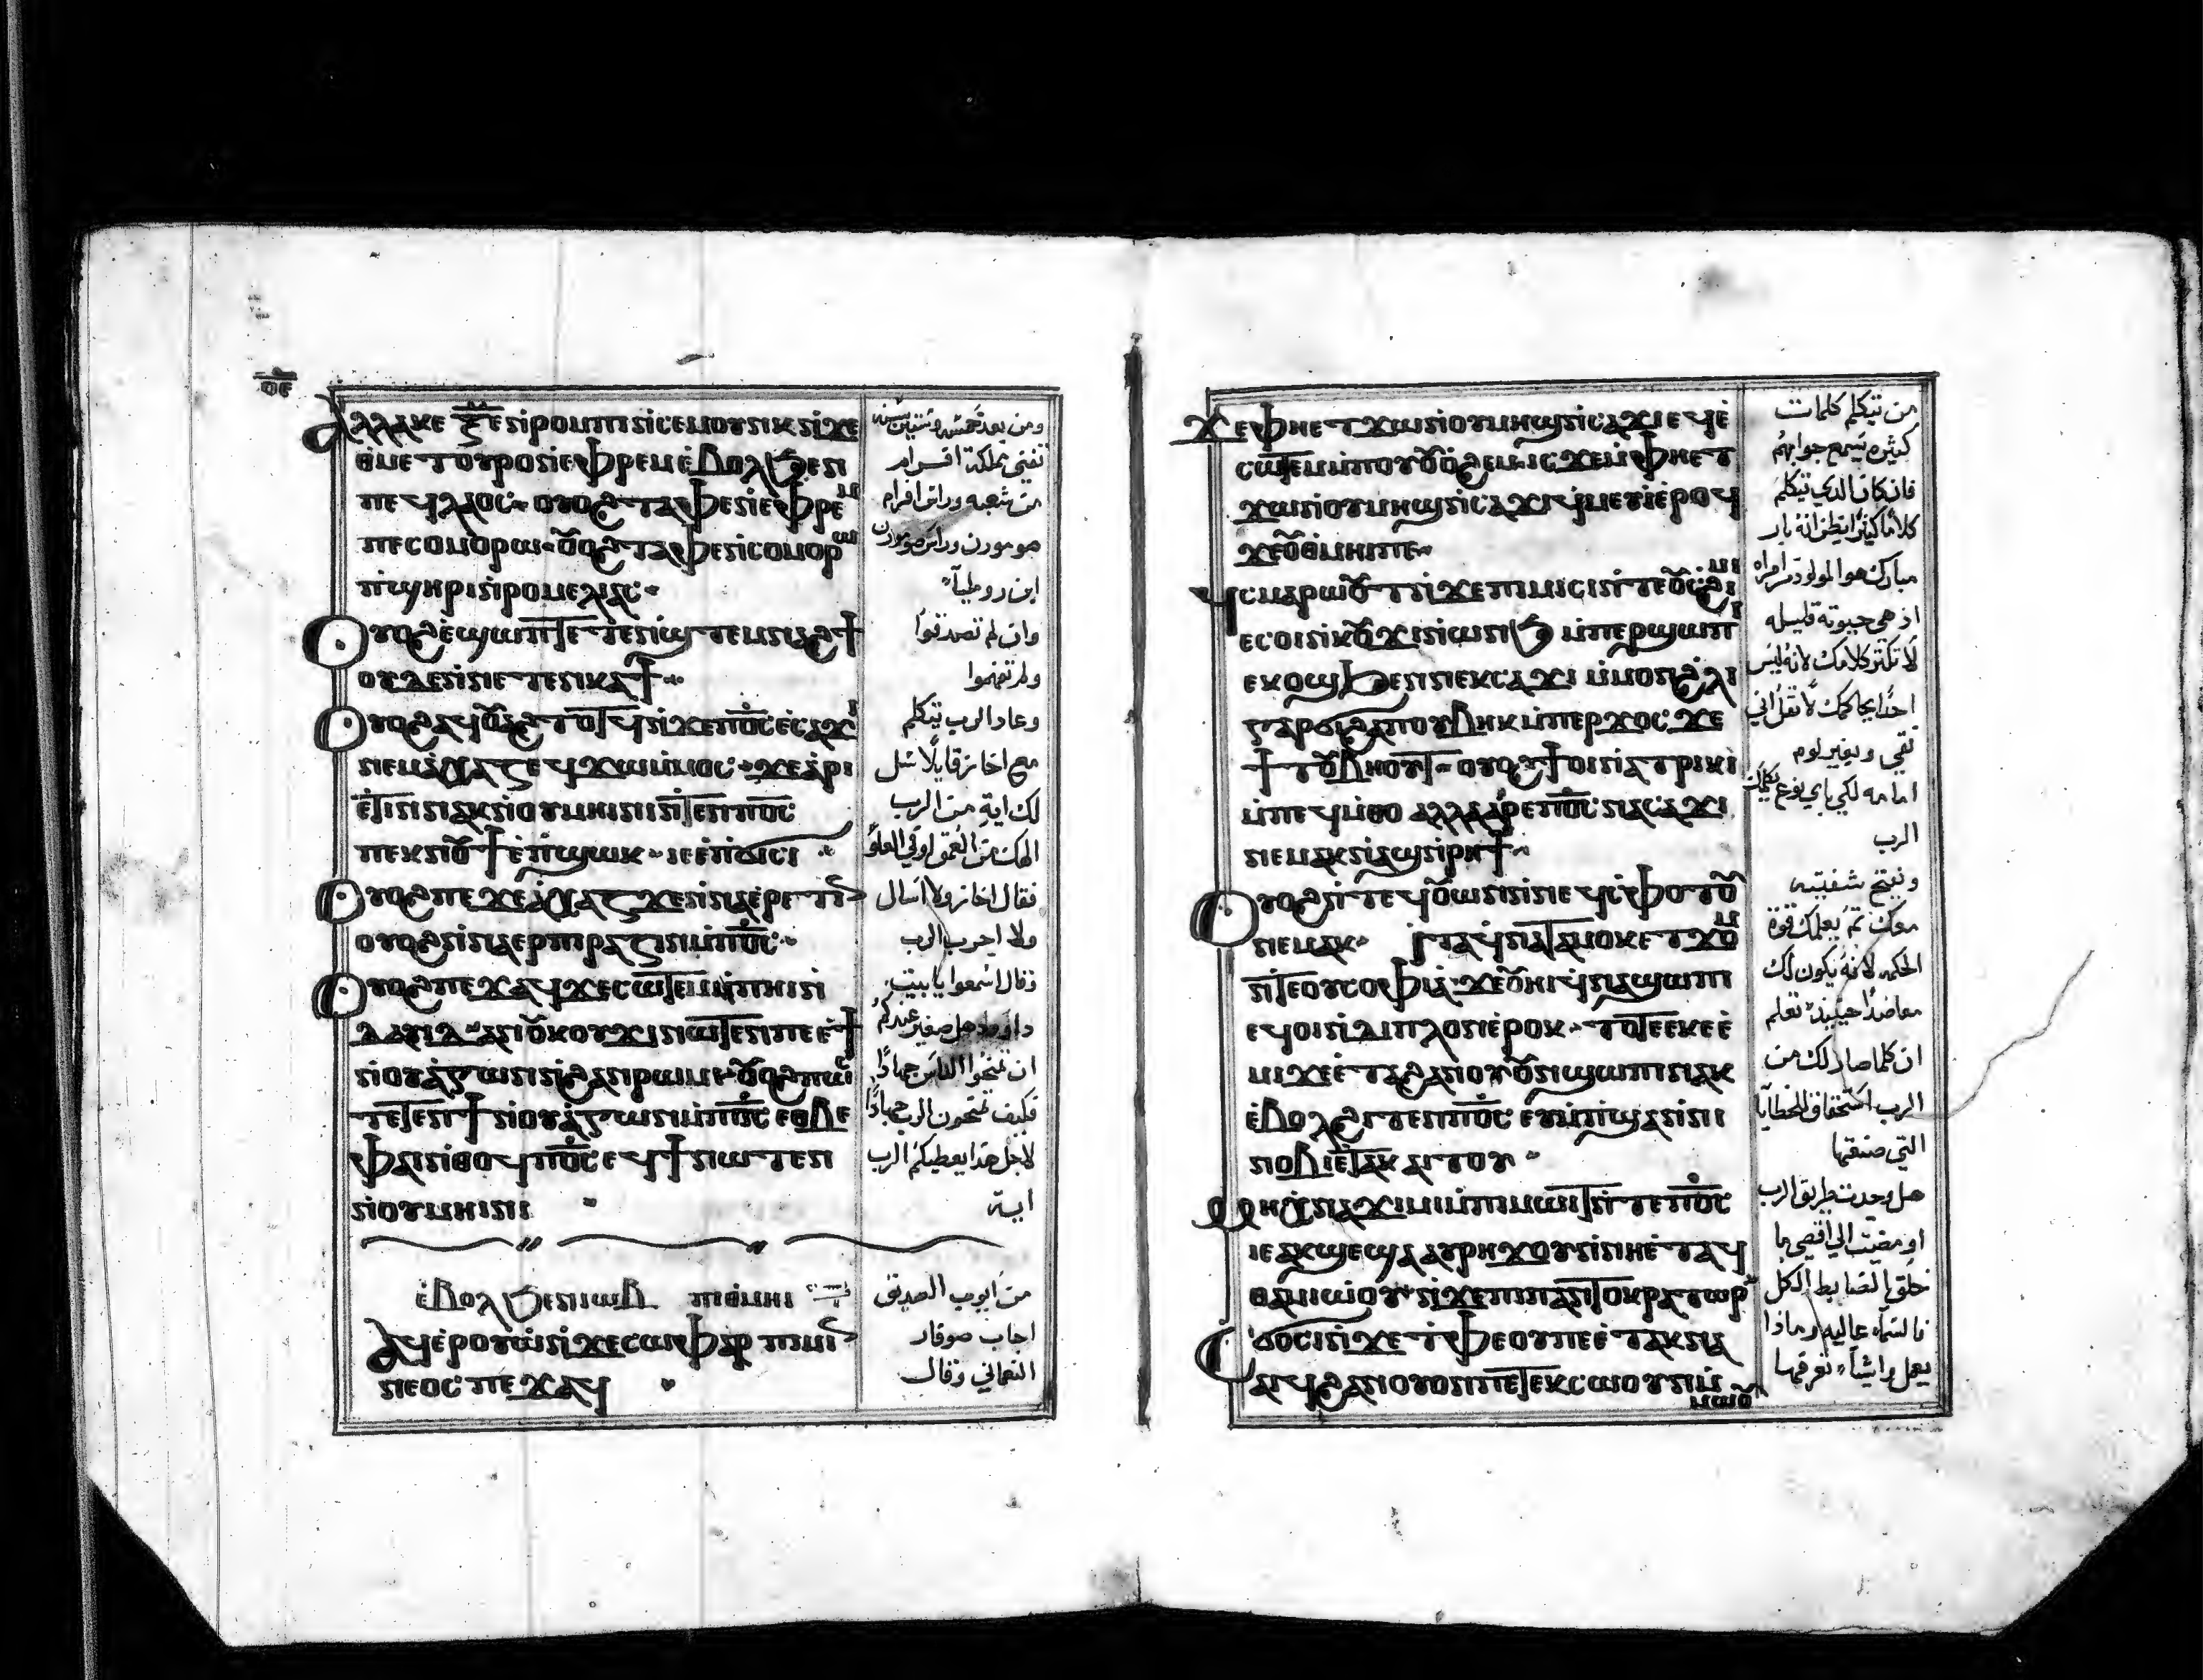 ⲟⲉ
ⲁⲗⲗⲁⲕⲉ ⲝ̅ⲉ̅ ⲛ̀ⲣⲟⲙⲡⲓ ⲛ̀ⲥⲉⲙⲟⲩⲛⲕ ⲛ̀ϫⲉ
ⲑⲙⲉⲧⲟⲩⲣⲟ ⲛ̀ⲉⲫⲣⲉⲙ ⲉ̀ⲃⲟⲗ ϧⲉⲛ
ⲡⲉϥⲗⲁⲟⲥ ⲟⲩⲟϩ ⲧⲁⲫⲉ ⲛ̀ⲉⲫⲣⲉⲙ
ⲡⲉ ⲥⲟⲙⲟⲣⲱ ⲟⲩⲟϩ ⲧⲁⲫⲉ ⲛ̀ⲥⲟⲙⲟⲣⲱ
ⲡ̀ϣⲏⲣⲓ ⲛ̀ⲣⲟⲙⲉⲗⲓⲁⲥ
ⲟⲩⲟϩ ⲉ̀ϣⲱⲡ ⲁⲣⲉⲧⲉⲛϣⲧⲉⲙⲛⲁϩϯ
ⲟⲩⲇⲉ ⲛ̀ⲛⲉⲧⲉⲛⲕⲁϯ
ⲟⲩⲟϩ ⲁϥⲟⲩⲁϩⲧⲟⲧϥ ⲛ̀ϫⲉ ⲡⲟ̅ⲥ̅ ⲉ̀ⲥⲁϫⲓ
ⲛⲉⲙ ⲁ̀ⲭⲁⲍ ⲉϥϫⲱ ⲙ̀ⲙⲟⲥ ϫⲉ ⲁ̀ⲣⲓ
ⲉ̀ⲧⲓⲛ ⲛⲁⲕ ⲛ̀ⲟⲩⲙⲏⲓⲛⲓ ⲛ̀ⲧⲉⲛ ⲡⲟ̅ⲥ̅
ⲡⲉⲕⲛⲟⲩϯ ⲉ̀ⲡ̀ϣⲱⲕ ⲓⲉ ⲉ̀ⲡ̀ϭⲓⲥⲓ
ⲟⲩⲟϩ ⲡⲉϫⲉ ⲁ̀ⲭⲁⲍ ϫⲉ ⲛ̀ⲛⲁⲉⲣⲉⲧⲓⲛ
ⲟⲩⲟϩ ⲛ̀ⲛⲁⲉⲣⲡⲓⲣⲁⲍⲓⲛ ⲙ̀ⲡⲟ̅ⲥ̅
ⲟⲩⲟϩ ⲡⲉϫⲁϥ ϫⲉ ⲥⲱⲧⲉⲙ ⲡⲏⲓ ⲛ̀
ⲇⲁⲩⲓⲇ ⲁⲛ ⲟⲩⲕⲟⲩϫⲓ ⲛⲱⲧⲉⲛ ⲡⲉ ⲉ̀ϯ
ⲛ̀ⲟⲩⲁ̀ⲅⲱⲛ ⲛ̀ϩⲁⲛⲣⲱⲙⲓ ⲟⲩⲟϩ ⲡⲱⲥ
ⲧⲉⲧⲉⲛϯ ⲛ̀ⲟⲩⲁ̀ⲅⲱⲛ ⲙ̀ⲡⲟ̅ⲥ̅ ⲉⲑⲃⲉ
ⲫⲁⲓ ⲛ̀ⲑⲟϥ ⲡⲟ̅ⲥ̅ ⲉϥϯ ⲛⲱⲧⲉⲛ
ⲛ̀ⲟⲩⲙⲏⲓⲛⲓ
ⲉ̀ⲃⲟⲗ ϧⲉⲛ ⲓⲱⲃ ⲡⲓⲑⲙⲏⲓ
ⲁϥⲉ̀ⲣⲟⲩⲱ̀ ⲛ̀ϫⲉ ⲥⲱⲫⲁⲣ ⲡⲓⲙⲓ
ⲛⲉⲟⲥ ⲡⲉϫⲁϥ
ومن بعد خمسه وستين سنه
تفنى مملكة افرام
من شعبه وراس افرام
صومورن وراس صومورن
ابن روملياء
وان لم تصدقوا
ولم تفهموا
وعاد الرب يتكلم
مع اخاز قايلا سل
لك اية من الرب
الهك من العمق او في العلو
فقال اخاز ولا اسال
ولا اجرب الرب
فقال اسمعوا يا بيت
داوود هل صغير عندكم
ان تمنحوا الناس جهادا
فكيف تمنحون الرب جهادا
لاجل هذا يعطيكم الرب
اية
من ايوب الصديق
اجاب صوفار
النعماني وقال
ϫⲉ ⲫⲏⲉⲧϫⲱ ⲛ̀ⲟⲩⲙⲏϣ ⲛ̀ⲥⲁϫⲓ ⲉϥⲉ̀
ⲥⲱⲧⲉⲙ ⲙ̀ⲡⲟⲩⲟⲩⲱϩⲉⲙ ⲓⲥϫⲉⲛ ⲫⲏⲉⲧ
ϫⲱ ⲛ̀ⲟⲩⲙⲏϣ ⲛ̀ⲥⲁϫⲓ ϥⲙⲉⲩⲓ ⲉ̀ⲣⲟϥ
ϫⲉ ⲟⲩⲑⲙⲏⲓ ⲡⲉ
ϥⲥⲙⲁⲣⲱⲟⲩⲧ ⲛ̀ϫⲉ ⲡⲓⲙⲓⲥⲓ ⲛ̀ⲧⲉ ⲟⲩⲥϩⲓⲙⲓ
ⲉⲥⲟⲓ ⲛ̀ⲕⲟⲩϫⲓ ⲛ̀ⲱⲛϧ ⲙ̀ⲡⲉⲣϣⲱⲡⲓ
ⲉⲕⲟϣ ϧⲉⲛ ⲛⲉⲕⲥⲁϫⲓ ⲙ̀ⲙⲟⲛ ϩⲗⲓ
ⲅⲁⲣ ϭⲓϩⲁⲡ ⲟⲩⲃⲏⲕ ⲙ̀ⲡⲉⲣϫⲟⲥ ϫⲉ
ϯⲧⲟⲩⲃⲏⲟⲩⲧ ⲟⲩⲟϩ ϯⲟⲓ ⲛ̀ⲁⲧⲣⲓⲕⲓ
ⲙ̀ⲡⲉϥⲙ̀ⲑⲟ ⲁⲗⲗⲁ ⲁⲣⲉ ⲡⲟ̅ⲥ̅ ⲛⲁⲥⲁϫⲓ
ⲛⲉⲙⲁⲕ ⲛ̀ⲁϣ ⲛ̀ⲣⲏϯ
ⲟⲩⲟϩ ⲛ̀ⲧⲉϥⲟⲩⲱⲛ ⲛ̀ⲛⲉϥⲥ̀ⲫⲟⲧⲟⲩ
ⲛⲉⲙⲁⲕ ⲓⲧⲁ ϥⲛⲁⲧⲁⲙⲟⲕ ⲉⲧϫⲟⲙ
ⲛ̀ⲧⲉ ⲟⲩⲥⲟⲫⲓⲁ ϫⲉ ⲟⲩⲏⲓ ϥⲛⲁϣⲱⲡⲓ
ⲉϥⲟⲓ ⲛ̀ⲇⲓⲡⲗⲟⲛ ⲉ̀ⲣⲟⲕ ⲧⲟⲧⲉ ⲉⲕⲉⲉ̀
ⲙⲓ ϫⲉ ⲉ̀ⲧⲁ ϩⲁⲛⲟⲩⲟⲛ ϣⲱⲡⲓ ⲛⲁⲕ
ⲉ̀ⲃⲟⲗ ϩⲓⲧⲉⲛ ⲡⲟ̅ⲥ̅ ⲉⲩⲙ̀ⲡ̀ϣⲁ ⲛ̀ⲛⲓ
ⲛⲟⲃⲓ ⲉ̀ⲧⲁⲕⲁⲓⲧⲟⲩ
ⲙⲏ ⲭ̀ⲛⲁϫⲓⲙⲓ ⲙ̀ⲡⲓⲙⲱⲓⲧ ⲛ̀ⲧⲉ ⲡⲟ̅ⲥ̅
ⲓⲉ ⲁⲕϣⲉ ϣⲁ ⲁⲩⲣⲏϫⲟⲩ ⲛ̀ⲛⲏⲉ̀ⲧⲁϥ
ⲑⲁⲙⲓⲱⲟⲩ ⲛ̀ϫⲉ ⲡⲓⲡⲁⲛⲧⲟⲕⲣⲁⲧⲱⲣ
ⲥϭⲟⲥⲓ ⲛ̀ϫⲉ ⲧ̀ⲫⲉ ⲟⲩ ⲡⲉ ⲉ̀ⲧⲁⲕⲛⲁ
ⲁⲓϥ ϩⲁⲛⲟⲩⲟⲛ ⲡⲉⲧⲉⲕⲥⲱⲟⲩⲛ ⲙ̀
ⲙⲱⲟⲩ
من يتكلم كلمات
كثيره يسمع جوابهم
فان كان الذي يتكلم
كلاما كثيرا يظن انه بار
مبارك هو المولود من امراه
اذ هي حيوته قليله
لا تكثر كلامك لانه ليس
احدا يحاكمك لا تقل اني
نقي وبغير لوم
امامه لكي باي نوع يكلمك
الرب
ويفتح شفتيه
معك ثم يعلمك قوة
الحكمه لانه يكون لك
معاضدا حينيذ تعلم
ان كلما صار لك من
الرب استحقاق الخطايا
التي صنعتها
هل وجدت طريق الرب
او مضيت الي اقصي ما
خلق الضابط الكل
فالسماء عاليه وماذا
يعمل واشياء تعرفها